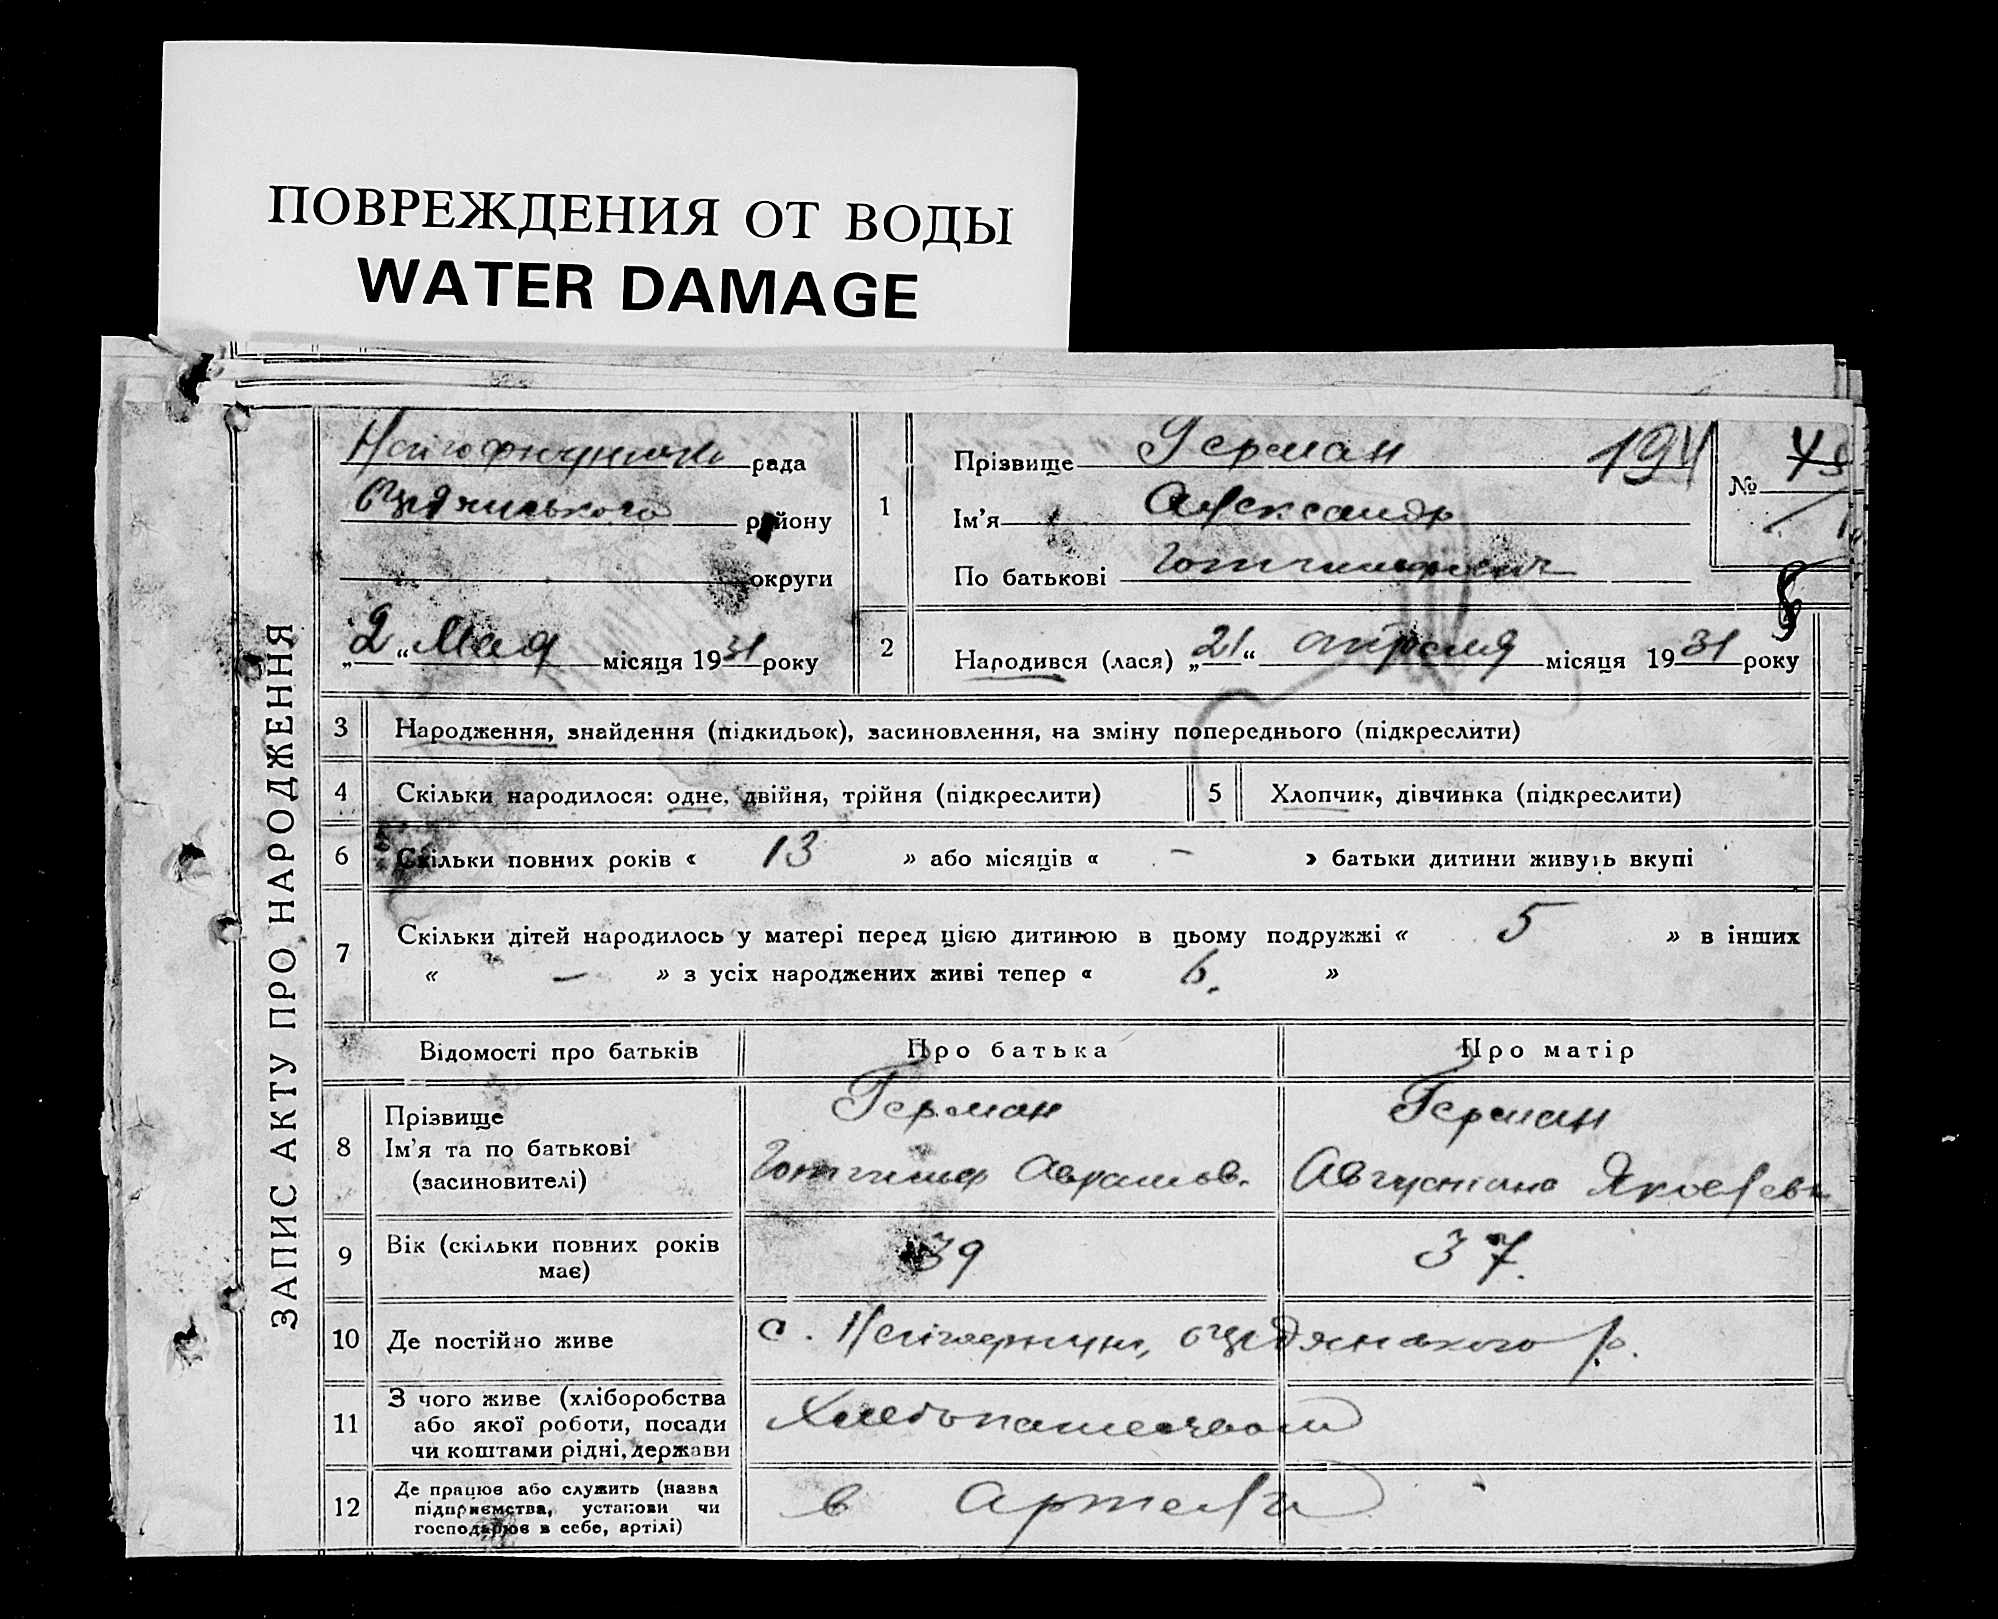 ПОВРЕЖДЕНИЯ ОТ ВОДЫ
WATER DAMAGE
ЗАПИС АКТУ ПРО НАРОДЖЕННЯ
рада
району
округи
„2“ Мая місяця 1931 року
1
Прізвище Герман
194
Ім'я Александр
По батькові
№ 45
2
Народився (лася) „21“ апреля місяця 1931 року
3 Народження, знайдення (підкидьок), засиновлення, на зміну попереднього (підкреслити)
4 Скільки народилося: одне, двійня, трійня (підкреслити)
5 Хлопчик, дівчинка (підкреслити)
6 Скільки повних років « 13 » або місяців « - » батьки дитини живуть вкупі
7 Скільки дітей народилось у матері перед цією дитиною в цьому подружжі « 5 » в інших
« - » з усіх народжених живі тепер « 6. »
Відомості про батьків Про батька Про матір
8 Прізвище Герман Герман
Ім'я та по батькові Аврамов. Августина
(засиновителі)
9 Вік (скільки повних років 39 37.
має)
10 Де постійно живе с. р.
11 З чого живе (хліборобства
або якої роботи, посади Хлебопашеством
чи коштами рідні, держави
12 Де працює або служить (назва
підприємства, установи чи в Артели
господарює в себе, артілі)